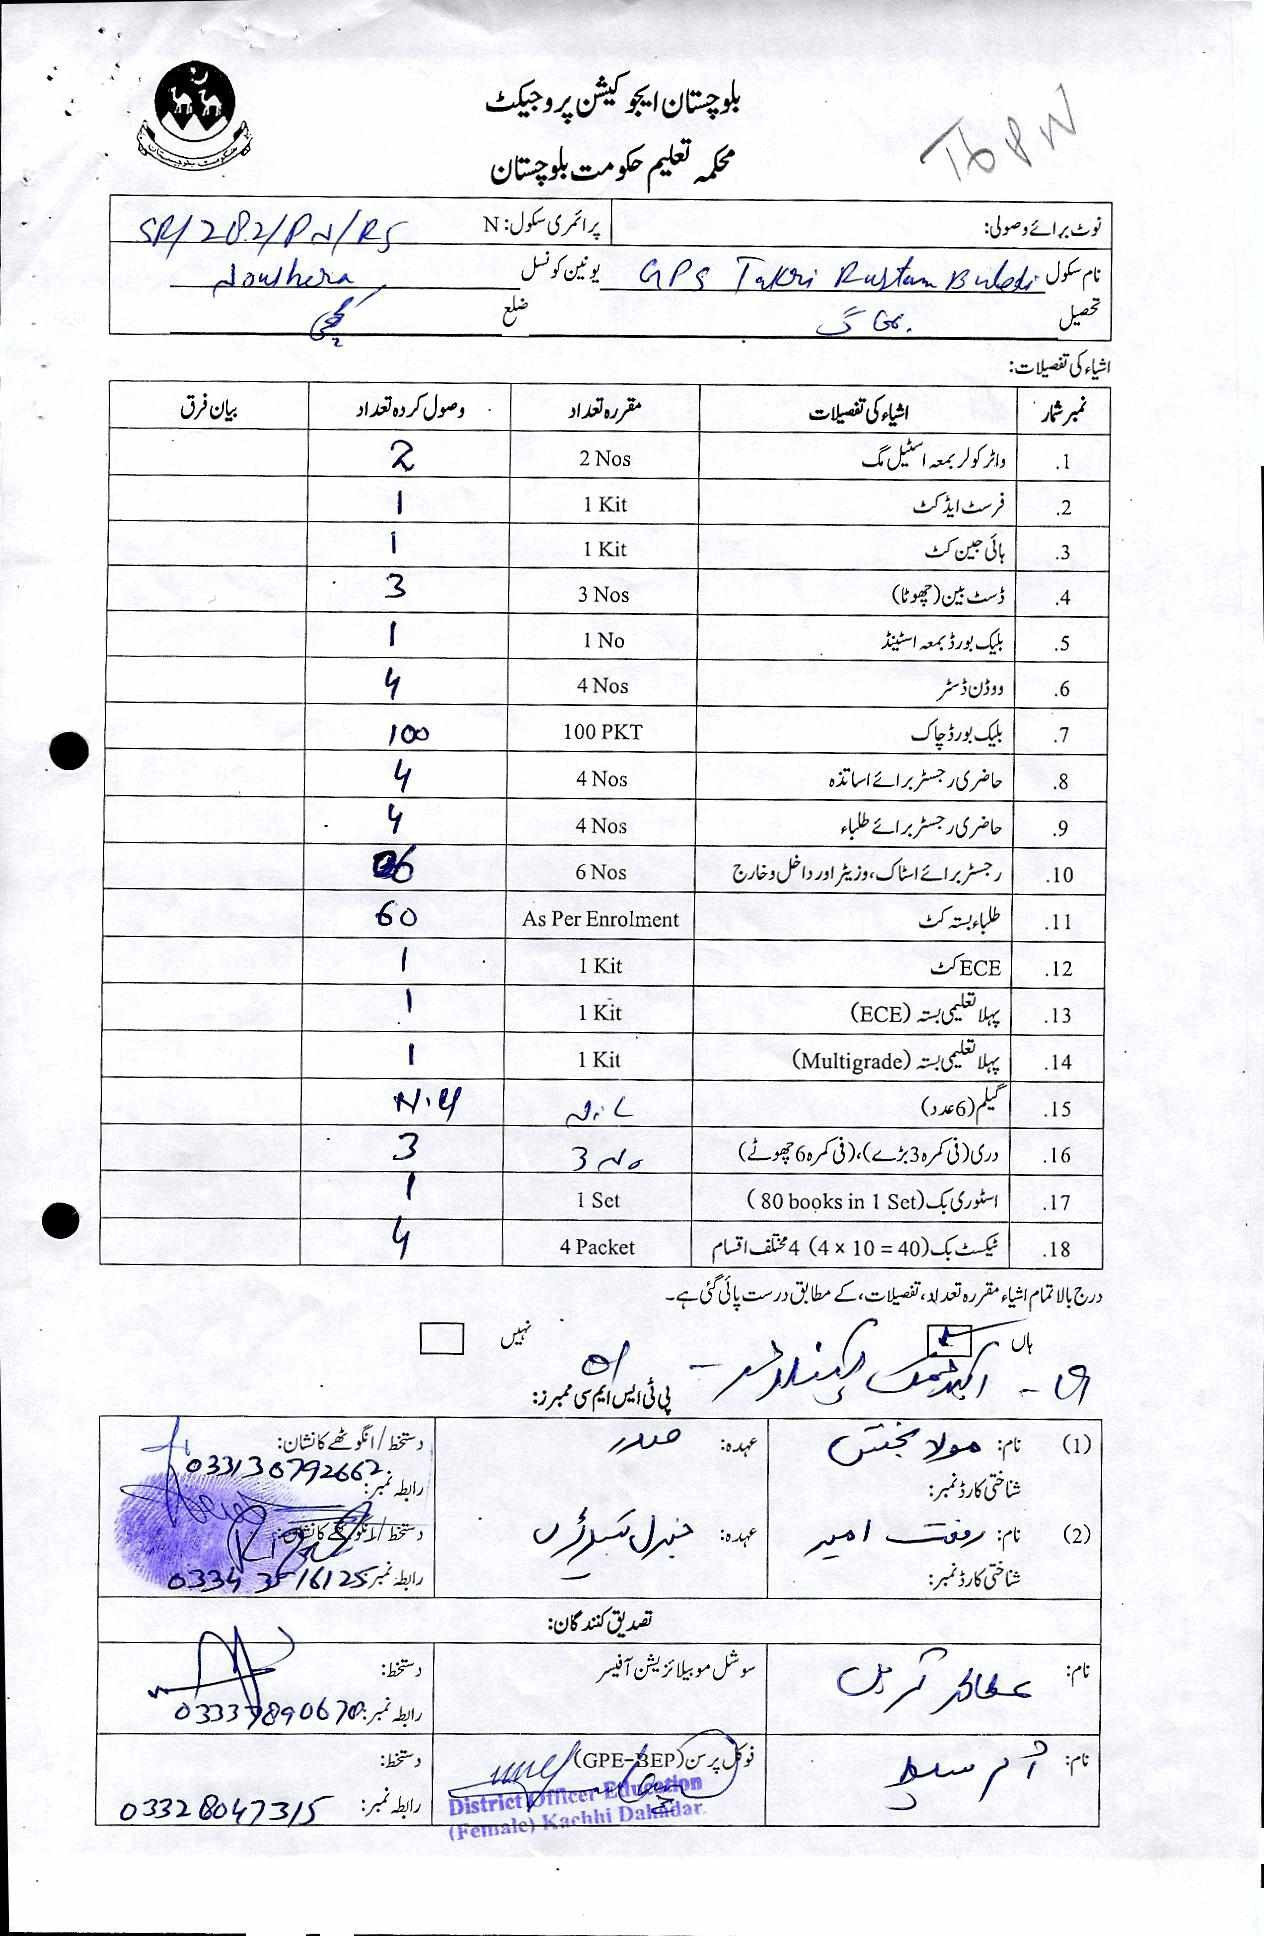 بلوچستان ایجوکیشن پروجیکٹ
محکمہ تعلیم حکومت بلوچستان
نوٹ برائے وصولی: پرائمری سکول: N SR/282/PN/RS
نام سکول GPS Takri Rustam Buledi یونین کونسل
تحصیل ضلع کچھی
اشیاء کی تفصیلات:
نمبر شمار اشیاء کی تفصیلات مقررہ تعداد وصول کردہ تعداد بیان فرق
1. واٹر کولر بمعہ اسٹیل مگ 2 Nos 2
2. فرسٹ ایڈ کٹ 1 Kit 1
3. ہائی جین کٹ 1 Kit 1
4. ڈسٹ بین (چھوٹا) 3 Nos 3
5. بلیک بورڈ بمعہ اسٹینڈ 1 No 1
6. ووڈن ڈسٹر 4 Nos 4
7. بلیک بورڈ چاک 100 PKT 100
8. حاضری رجسٹر برائے اساتذہ 4 Nos 4
9. حاضری رجسٹر برائے طلباء 4 Nos 4
10. رجسٹر برائے اسٹاک، وزیٹر اور داخل و خارج 6 Nos 6
11. طلباء بستہ کٹ As Per Enrolment 60
12. ECE کٹ 1 Kit 1
13. پہلا تعلیمی بستہ (ECE) 1 Kit 1
14. پہلا تعلیمی بستہ (Multigrade) 1 Kit 1
15. گیلم (6 عدد) Nil Nil
16. دری (فی کمرہ 3 بڑے)، (فی کمرہ 6 چھوٹے) 3 No 3
17. اسٹوری بک (80 books in 1 Set) 1 Set 1
18. ٹیکسٹ بک (4 × 10 = 40) 4 مختلف اقسام 4 Packet 4
درج بالا تمام اشیاء مقررہ تعداد، تفصیلات، کے مطابق درست پائی گئی ہے۔
ہاں نہیں
پی ٹی ایس ایم سی ممبرز:
(1) نام: مولا بخش عہدہ: صدر دستخط / انگوٹھے کا نشان:
شناختی کارڈ نمبر: رابطہ نمبر: 03313792662
(2) نام: رفعت امیر عہدہ: جنرل دستخط / انگوٹھے کا نشان:
شناختی کارڈ نمبر: رابطہ نمبر: 03343516125
تصدیق کنندگان:
نام: سوشل موبیلائزیشن آفیسر دستخط:
رابطہ نمبر: 03337890670
نام: فوکل پرسن (GPE-BEP) دستخط:
رابطہ نمبر: 03328047315
District Officer Education
(Female) Kachhi Dahadar.